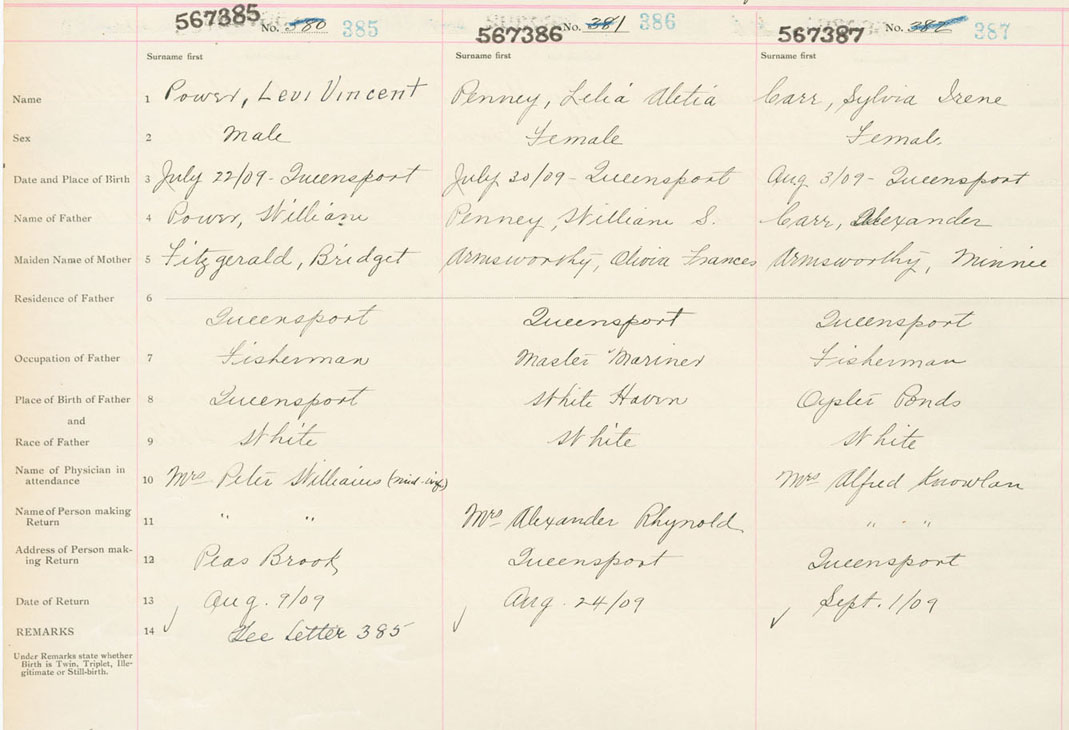 567385 No. 380 385 567386 No. 381 386 567387 No. 382 387
Surname first Surname first Surname first
Name 1 Power, Levi Vincent Penney, Lelia Aletia Carr, Sylvia Irene
Sex 2 Male Female Female
Date and Place of Birth 3 July 22/09 - Queensport July 30/09 - Queensport Aug 3/09 - Queensport
Name of Father 4 Power, William Penney, William S. Carr, Alexander
Maiden Name of Mother 5 Fitzgerald, Bridget Armsworthy, Olivia Frances Armsworthy, Minnie
Residence of Father 6
Queensport Queensport Queensport
Occupation of Father 7 Fisherman Master Mariner Fisherman
Place of Birth of Father 8 Queensport White Haven Oyster Ponds
and
Race of Father 9 White White White
Name of Physician in
attendance 10 Mrs Peter Williams (mid-wife) Mrs Alfred Knowlan
Name of Person making
Return 11 " " Mrs Alexander Rhynold " "
Address of Person mak-
ing Return 12 Peas Brook Queensport Queensport
Date of Return 13 Aug. 9/09 Aug. 24/09 Sept. 1/09
REMARKS 14 See Letter 385
Under Remarks state whether
Birth is Twin, Triplet, Ille-
gitimate or Still-birth.